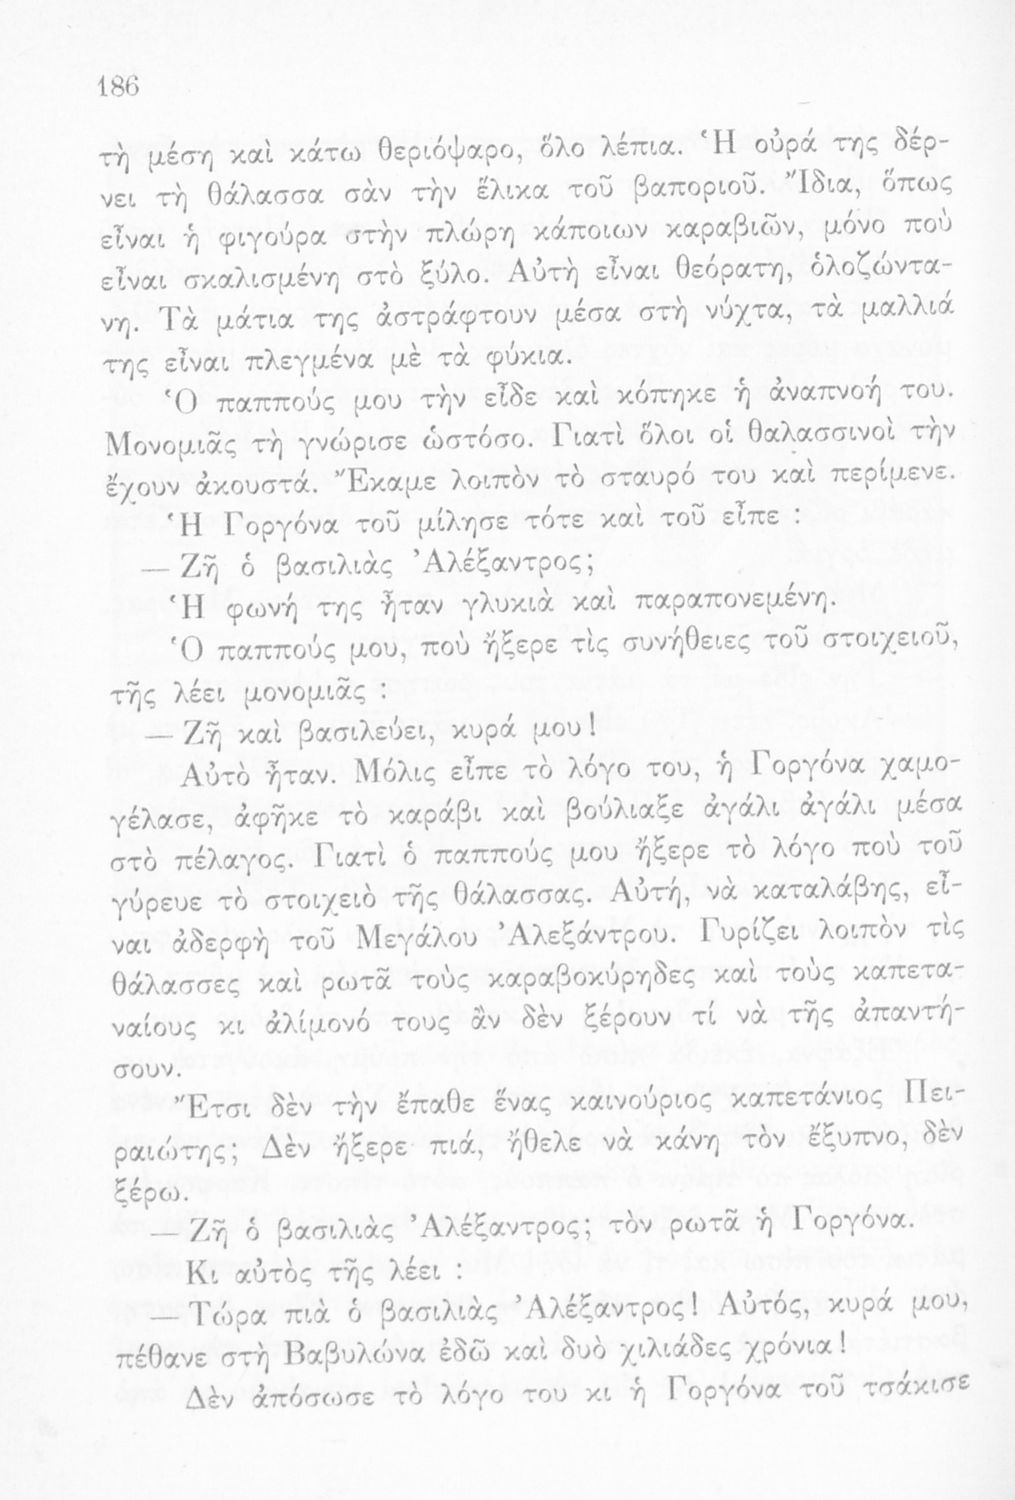 186
τὴ μέση καὶ κάτω θεριόψαρο, ὅλο λέπια. Ἡ οὐρά της δέρ-
νει τὴ θάλασσα σὰν τὴν ἕλικα τοῦ βαποριοῦ. Ἴδια, ὅπως
εἶναι ἡ φιγούρα στὴν πλώρη κάποιων καραβιῶν, μόνο ποὺ
εἶναι σκαλισμένη στὸ ξύλο. Αὐτὴ εἶναι θεόρατη, ὁλοζώντα-
νη. Τὰ μάτια της ἀστράφτουν μέσα στὴ νύχτα, τὰ μαλλιά
της εἶναι πλεγμένα μὲ τὰ φύκια.
Ὁ παππούς μου τὴν εἶδε καὶ κόπηκε ἡ ἀναπνοή του.
Μονομιᾶς τὴ γνώρισε ὡστόσο. Γιατὶ ὅλοι οἱ θαλασσινοὶ τὴν
ἔχουν ἀκουστά. Ἔκαμε λοιπὸν τὸ σταυρό του καὶ περίμενε.
Ἡ Γοργόνα τοῦ μίλησε τότε καὶ τοῦ εἶπε :
— Ζῆ ὁ βασιλιὰς Ἀλέξαντρος;
Ἡ φωνή της ἦταν γλυκιὰ καὶ παραπονεμένη.
Ὁ παππούς μου, ποὺ ἤξερε τὶς συνήθειες τοῦ στοιχειοῦ,
τῆς λέει μονομιᾶς :
— Ζῆ καὶ βασιλεύει, κυρά μου!
Αὐτὸ ἦταν. Μόλις εἶπε τὸ λόγο του, ἡ Γοργόνα χαμο-
γέλασε, ἀφῆκε τὸ καράβι καὶ βούλιαξε ἀγάλι ἀγάλι μέσα
στὸ πέλαγος. Γιατὶ ὁ παππούς μου ἤξερε τὸ λόγο ποὺ τοῦ
γύρευε τὸ στοιχειὸ τῆς θάλασσας. Αὐτή, νὰ καταλάβης, εἶ-
ναι ἀδερφὴ τοῦ Μεγάλου Ἀλεξάντρου. Γυρίζει λοιπὸν τὶς
θάλασσες καὶ ρωτᾶ τοὺς καραβοκύρηδες καὶ τοὺς καπετα-
ναίους κι ἀλίμονό τους ἂν δὲν ξέρουν τί νὰ τῆς ἀπαντή-
σουν.
Ἔτσι δὲν τὴν ἔπαθε ἕνας καινούριος καπετάνιος Πει-
ραιώτης; Δὲν ἤξερε πιά, ἤθελε νὰ κάνη τὸν ἔξυπνο, δὲν
ξέρω.
— Ζῆ ὁ βασιλιὰς Ἀλέξαντρος; τὸν ρωτᾶ ἡ Γοργόνα.
Κι αὐτὸς τῆς λέει :
— Τώρα πιὰ ὁ βασιλιὰς Ἀλέξαντρος! Αὐτός, κυρά μου,
πέθανε στὴ Βαβυλώνα ἐδῶ καὶ δυὸ χιλιάδες χρόνια!
Δὲν ἀπόσωσε τὸ λόγο του κι ἡ Γοργόνα τοῦ τσάκισε